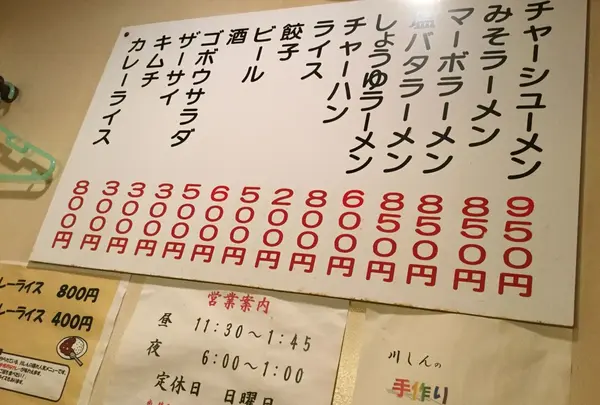 チャーシューメン 950円
みそラーメン 850円
マーボラーメン 850円
塩バタラーメン 850円
しょうゆラーメン 600円
チャーハン 800円
ライス 200円
餃子 500円
ビール 600円
酒 500円
ゴボウサラダ 300円
ザーサイ 300円
キムチ 300円
カレーライス 800円
レーライス 800円
レーライス 400円
営業案内
昼 11:30〜1:45
夜 6:00〜1:00
定休日 日曜日
川しんの
手作り